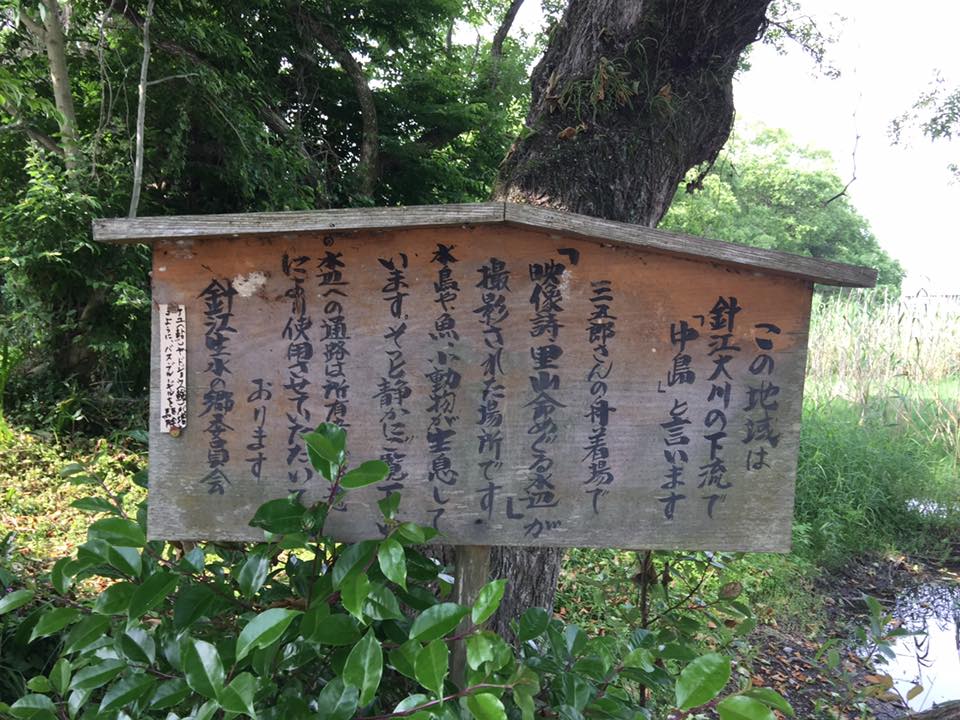 この地域は
針江大川の下流で
「中島」と言います
三五郎さんの舟着場で
「映像詩里山命めぐる水辺」が
撮影された場所です。
本島や魚、小動物が生息して
います。そっと静かにご覧下さい
の水辺への通路は所有
により使用させていたゞいて
おります
針江生水の郷委員会